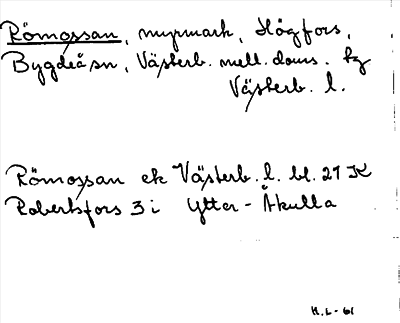 Römossan, myrmark, Högfors,
Bygdeå sn, Västerb. mell. doms. tg
Västerb. l.
Römossan ek Västerb. l. bl. 27 K
Robertsfors 3 i Ytter-Åkulla
H.L-61